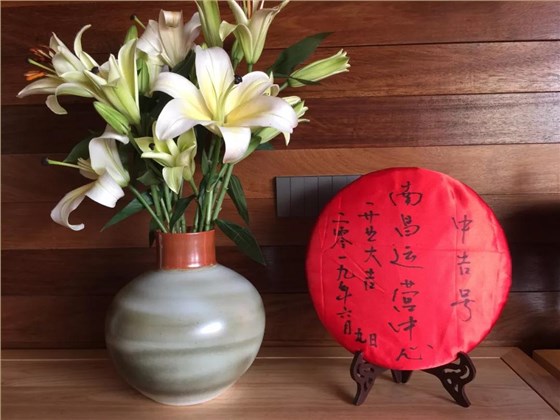 中吉号
南昌运营中心
开业大吉
二零一九年六月九日